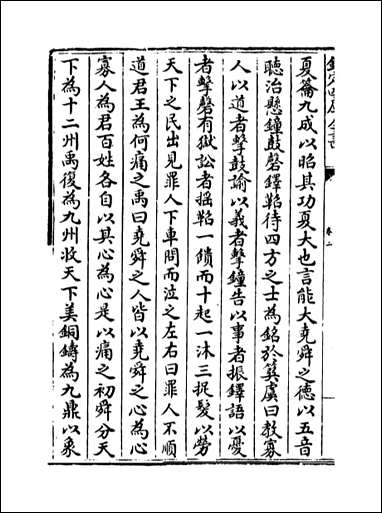 欽定四庫全書
卷二
夏籥九成以昭其功夏大也言能大堯舜之德以五音
聽治懸鐘鼓磬鐸鞀待四方之士為銘於簨虡曰教寡
人以道者擊鼓諭以義者擊鐘告以事者振鐸語以憂
者擊磬有獄訟者揺鞀一饋而十起一沐三捉髮以勞
天下之民出見罪人下車問而泣之左右曰罪人不順
道君王為何痛之禹曰堯舜之人皆以堯舜之心為心
寡人為君百姓各自以其心為心是以痛之初舜分天
下為十二州禹復為九州收天下美銅鑄為九鼎以象